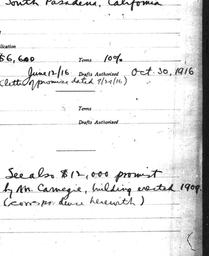 South Pasadena, California
lication
$6,600 Terms 10%
June 12/16 Drafts Authorized Oct 30, 1916
(letter of promise dated 9/29/16)
Terms
Drafts Authorized
See also $12,000 promist
by Mr. Carnegie, building erected 1909.
(correspondence herewith)